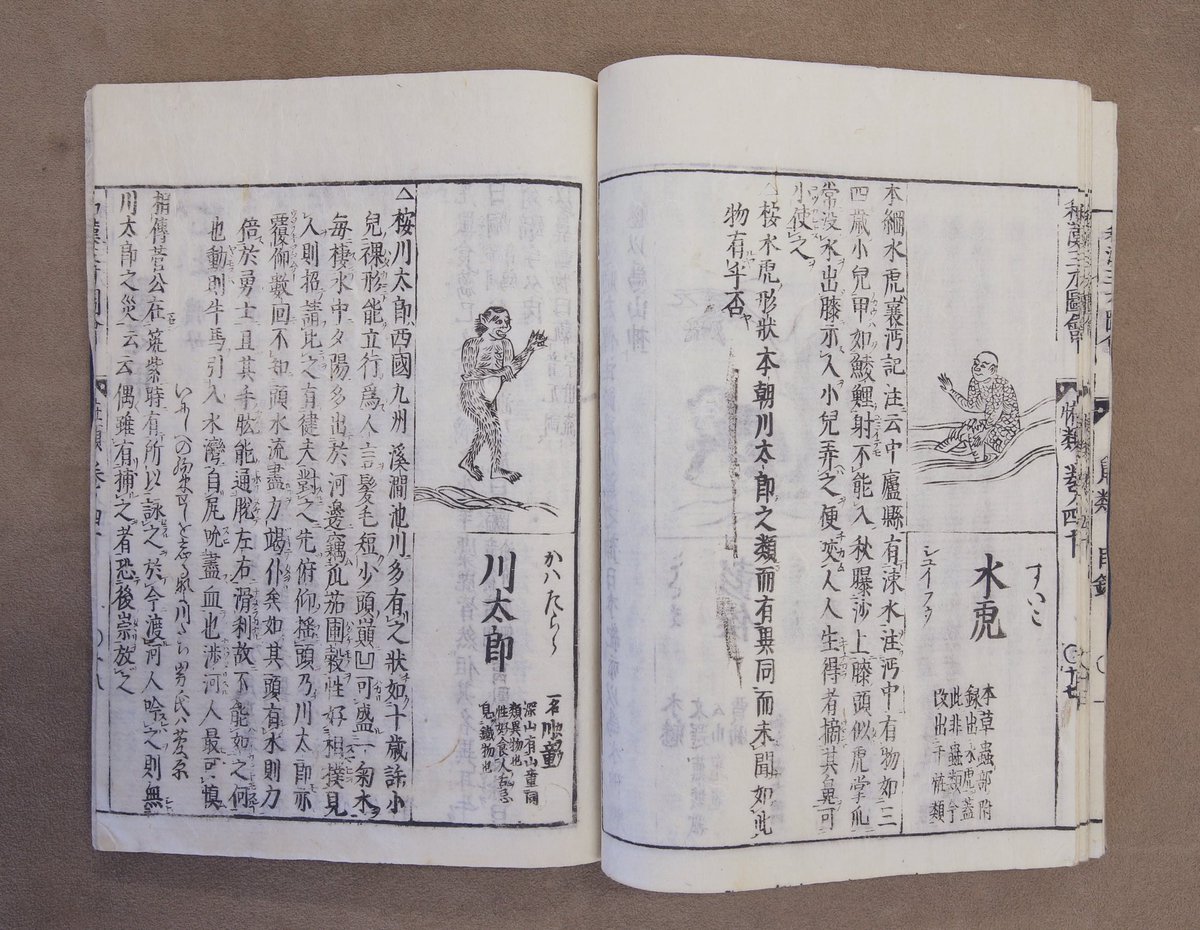 和漢三才圖會
怪類 卷ノ四十
すいこ
水虎
シユイフウ
本草蟲部附
録出水虎蓋
此非蟲類今
改出于怪類
本綱水虎襄沔記注云中廬縣有涑水注沔中有物如三
四歳小兒甲如鯪鯉射不能入秋曝沙上膝頭似虎掌爪
常没水出膝示人小兒弄之便咬人人生得者摘其鼻可
小使之
△按水虎形狀本朝川太郎之類而有異同而未聞如此
物有乎否
かハたらう
川太郎
一名川童
深山有山童同
類異物也
性好食人舌忌
見鐵物也
△按川太郎西國九州溪澗池川多有之狀如十歳許小
兒裸形能立行爲人言髮毛短少頭巓凹可盛一匊水
毎棲水中夕陽多出於河邊竊瓜茄圃穀性好相撲見
人則招請比之有健夫對之先俯仰揺頭乃川太郎亦
覆仰數回不知頭水流盡力竭仆矣如其頭有水則力
倍於勇士且其手肱能通脱左右滑利故不能如之何
也動則牛馬引入水灣自尻吮盡血也渉河人最可慎
いにしへの約束せしを忘るなよ川たち男氏ハ菅原
相傳菅公在筑紫時有所以詠之於今渡河人吟之則無
川太郎之災云云偶雖有捕之者恐後崇放之